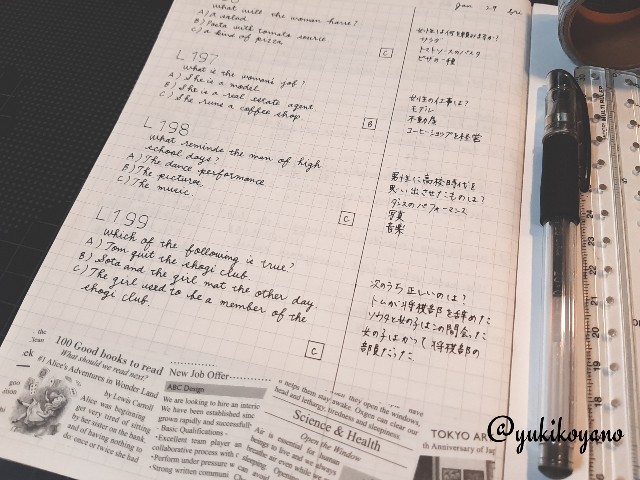 Jan 29 Fri
what will the woman have?
A) a salad
B) Pasta with tomato source
C) a kind of pizza
C
女性は何を頼みますか?
サラダ
トマトソースのパスタ
ピザの一種
L 197
What is the woman's job?
A) She is a model
B) She is a real estate agent
C) She runs a coffee shop
B
女性の仕事は?
モデル
不動産
コーヒーショップを経営
L 198
What reminds the man of high
school days?
A) The dance performance
B) The picture
C) The music
C
男性に高校時代を
思い出させたものは?
ダンスのパフォーマンス
写真
音楽
L199
Which of the following is true?
A) Tom quit the shogi club
B) Sota and the girl met the other day
C) The girl used to be a member of the
shogi club.
C
次のうち正しいのは?
トムが将棋部を辞めた
ソウタと女の子はこの間会った
女の子はかつて将棋部の
部員だった
the
ck
100 Good books to read
What should we read next?
#1 Alice's Adventures in Wonder Land
by Lewis Carroll
Alice was beginning
get very tired of sitting
by her sister on the bank,
and of having nothing to
do: once or twice she had
New Job Offer
ABC Design
We are looking to hire an interic
We have been established sinc
grown rapidly and successfull
Basic Qualifications
•Excellent team player an
collaborative process with c
•Perform under pressure w
•Strong written communi
they open the windows,
helps them stay awake. Oxygen can clear our
head and lethargy, tiredness and sleepiness.
Science & Health
Open the Window
Air is essential for human
beings to live and we always
breathe air even while we
sleeping. Opening
can avoid
TOKYO AR
th Anniversary of Jap
@yukikoyano